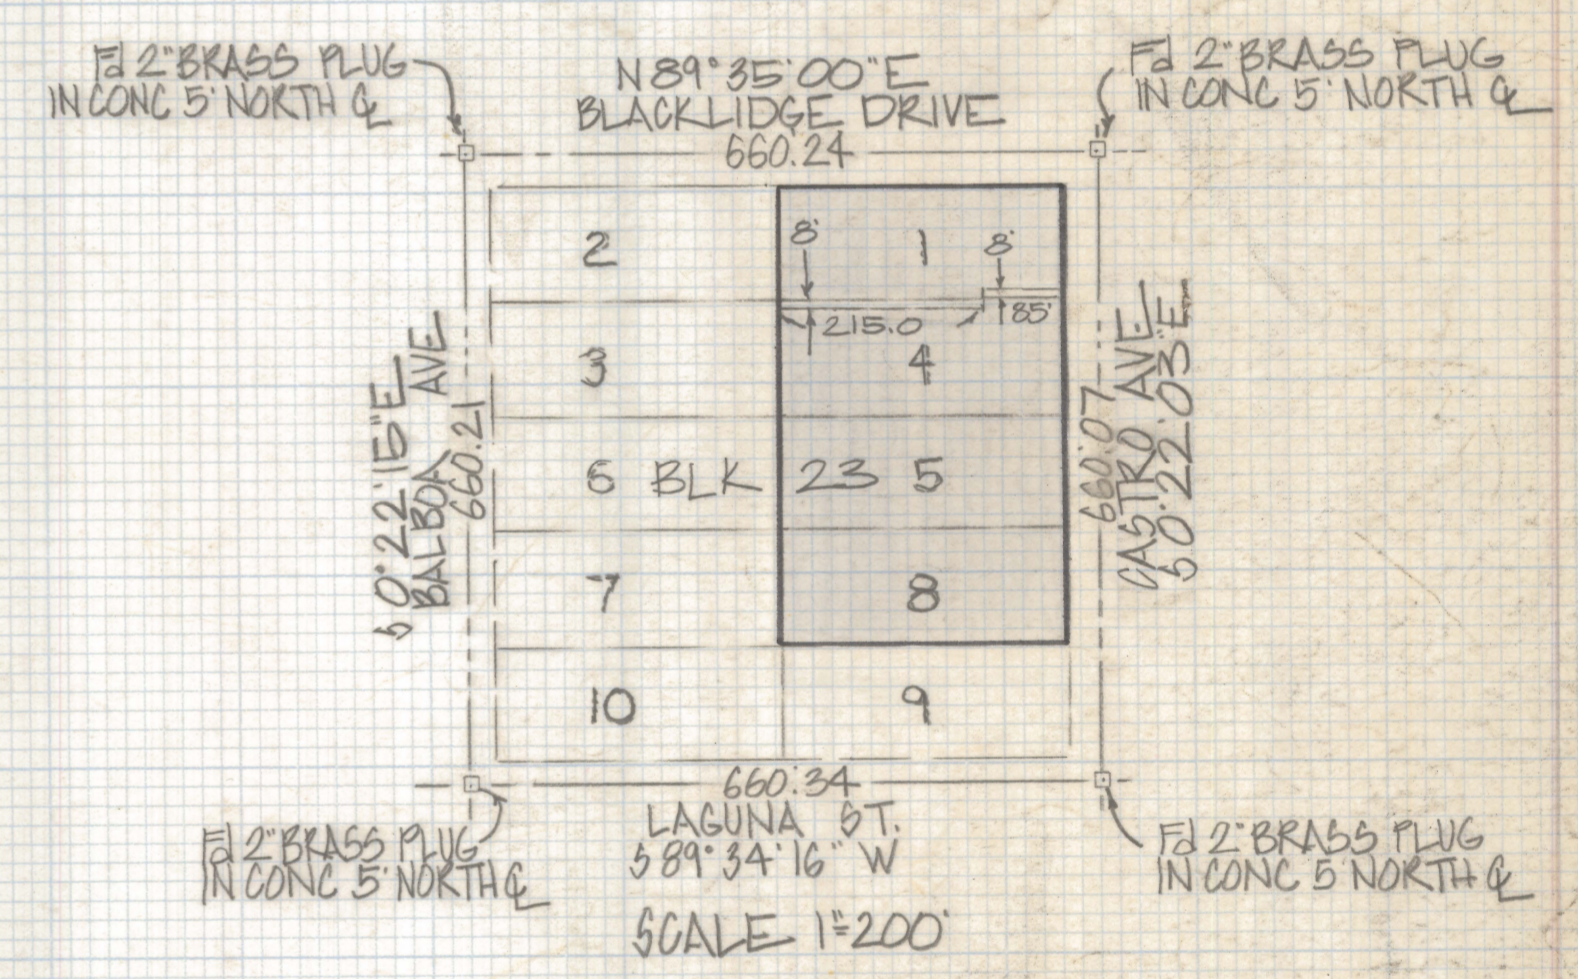 Fd 2" BRASS PLUG
IN CONC 5' NORTH ℄
N 89° 35' 00" E
BLACKLIDGE DRIVE
660.24
Fd 2" BRASS PLUG
IN CONC 5' NORTH ℄
2
8'
1
8'
215.0
85'
3
4
S 0° 22' 15" E
BALBOA AVE
660.21
6 BLK 23 5
660.07
CASTRO AVE
S 0° 22' 03" E
7
8
10
9
660.34
LAGUNA ST.
S 89° 34' 16" W
Fd 2" BRASS PLUG
IN CONC 5' NORTH ℄
Fd 2" BRASS PLUG
IN CONC 5' NORTH ℄
SCALE 1"=200'